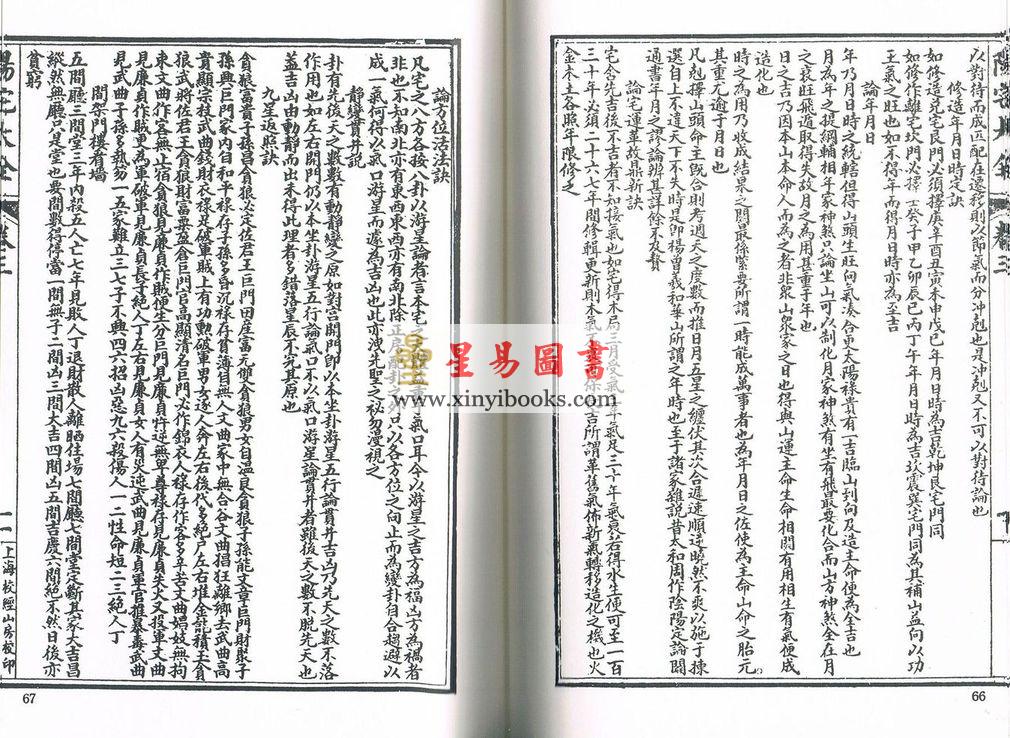 以對待而成匹配在遷移則以節氣而分冲剋也是冲剋又不可以對待論也
修造年月日時定訣
如修造兌宅艮門必須擇庚辛酉丑寅未申戌巳年月日時為吉乾坤艮宅門同
如修作離宅坎門必擇壬癸子甲乙卯辰巳丙丁午年月日時為吉坎震巽宅門同為其補山益向以功
王氣之旺也如不得年而得月日時亦為至吉
論年月日
年乃月日時之統轄但得山頭生旺向氣湊合更太陽祿貴有一吉臨山到向及造主命便為全吉也
月為年之提綱輔相乎年家神煞只論坐山可以制化月家神煞有坐有飛最要化合而山方神煞全在月
之衰旺飛遁取得失故月之為用甚重于年也
日之吉乃因本山本命人而為之者非衆山衆家之日也得與山運主命生命相關有用相生有氣便成
造化也
時之為用乃收成結果之關最係緊要所謂一時能成萬事者也為年月日之佐使為主命山命之胎元
其重尤逾于月日也
凡剋擇山頭命主既合則考週天之度數而推日月五星之纏伏其次合遲速順逆曉然不爽以施于揀
選自上不達天下不失時是卽楊曾羲和華山所謂之年時也至于諸家雜說昔太和周作陰陽定論闢
通書年月之謬論辨甚詳餘不友贅
論宅運革故鼎新訣
宅舍先吉後不吉者不知接氣也如宅得木局三月受氣
年氣足三十年氣衰若得水生便可至一百
三十年必須二十六七年間修輯更新則本氣
吉所謂革舊氣佈新氣轉移造化之機也火
金木土各照年限修之
66
論方位活法訣
凡宅之八方各接八卦以游星論者言本宅
氣口耳今以游星之吉方為福凶方為禍者
非也不知南非亦有東西東西亦有南非除正房能卦
列只以各方位之向止而為變卦自合趨避以
成一氣何得以氣口游星而遂為吉凶也此亦洩先聖之秘勿漫視之
靜變貫井說
卦有先後天之數有動靜變之原如對宮開門卽以本坐卦游星五行論貫井吉凶乃先天之數不落
作用也如左右開門仍以本坐卦游星五行論氣口不以氣口游星論貫井者雖後天之數不脫先天也
蓋吉凶由動靜而出未得此理者多錯落星辰不究其原也
九星返照訣
貪狼富貴子孫昌貪狼必定佐君王巨門田產富元雙貪狼男女自温良貪狼子孫能文章巨門財聚子
孫興巨門家內自和平祿存子孫多昏沉祿存貧薄自無人文曲家中無合谷文曲猖狂離鄉去武曲高
貴顯宗枝武曲錢財衣祿足破軍賊上有功勳破軍男女逐人奔左右後代多絕戶左右堆金龍積玉貪
狼武將佐君王貪狼財富粟盈倉巨門官高顯清名巨門必作錦衣人祿存作客多辛苦文曲娼妓無拘
東文曲作客不止宿貪狼見廉貞作賊便生分巨門見廉貞忤逆無卑尊祿存見廉貞失火又投軍文曲
見廉貞作賊更為軍破軍見廉貞長子絕人丁左右見廉貞女人有災迍武曲見廉貞軍官推募毒武曲
見武曲子孫多執勿一五家難立三七子不興四六招凶惡九六殺傷人一二性命短二三絕人丁
間架門樓看墻
五間廳三間堂三年內殺五人亡七年見敗人丁退財散人離晒住場七間廳七間堂定斷其家大吉昌
縱然無廳只是堂也要間數得停當一間無子二間凶三間大吉四間凶五間吉慶六間絕不然日後亦
貧窮
陽宅大全
卷三
上海校經山房校印
67
星易圖書
www.xinyibooks.com